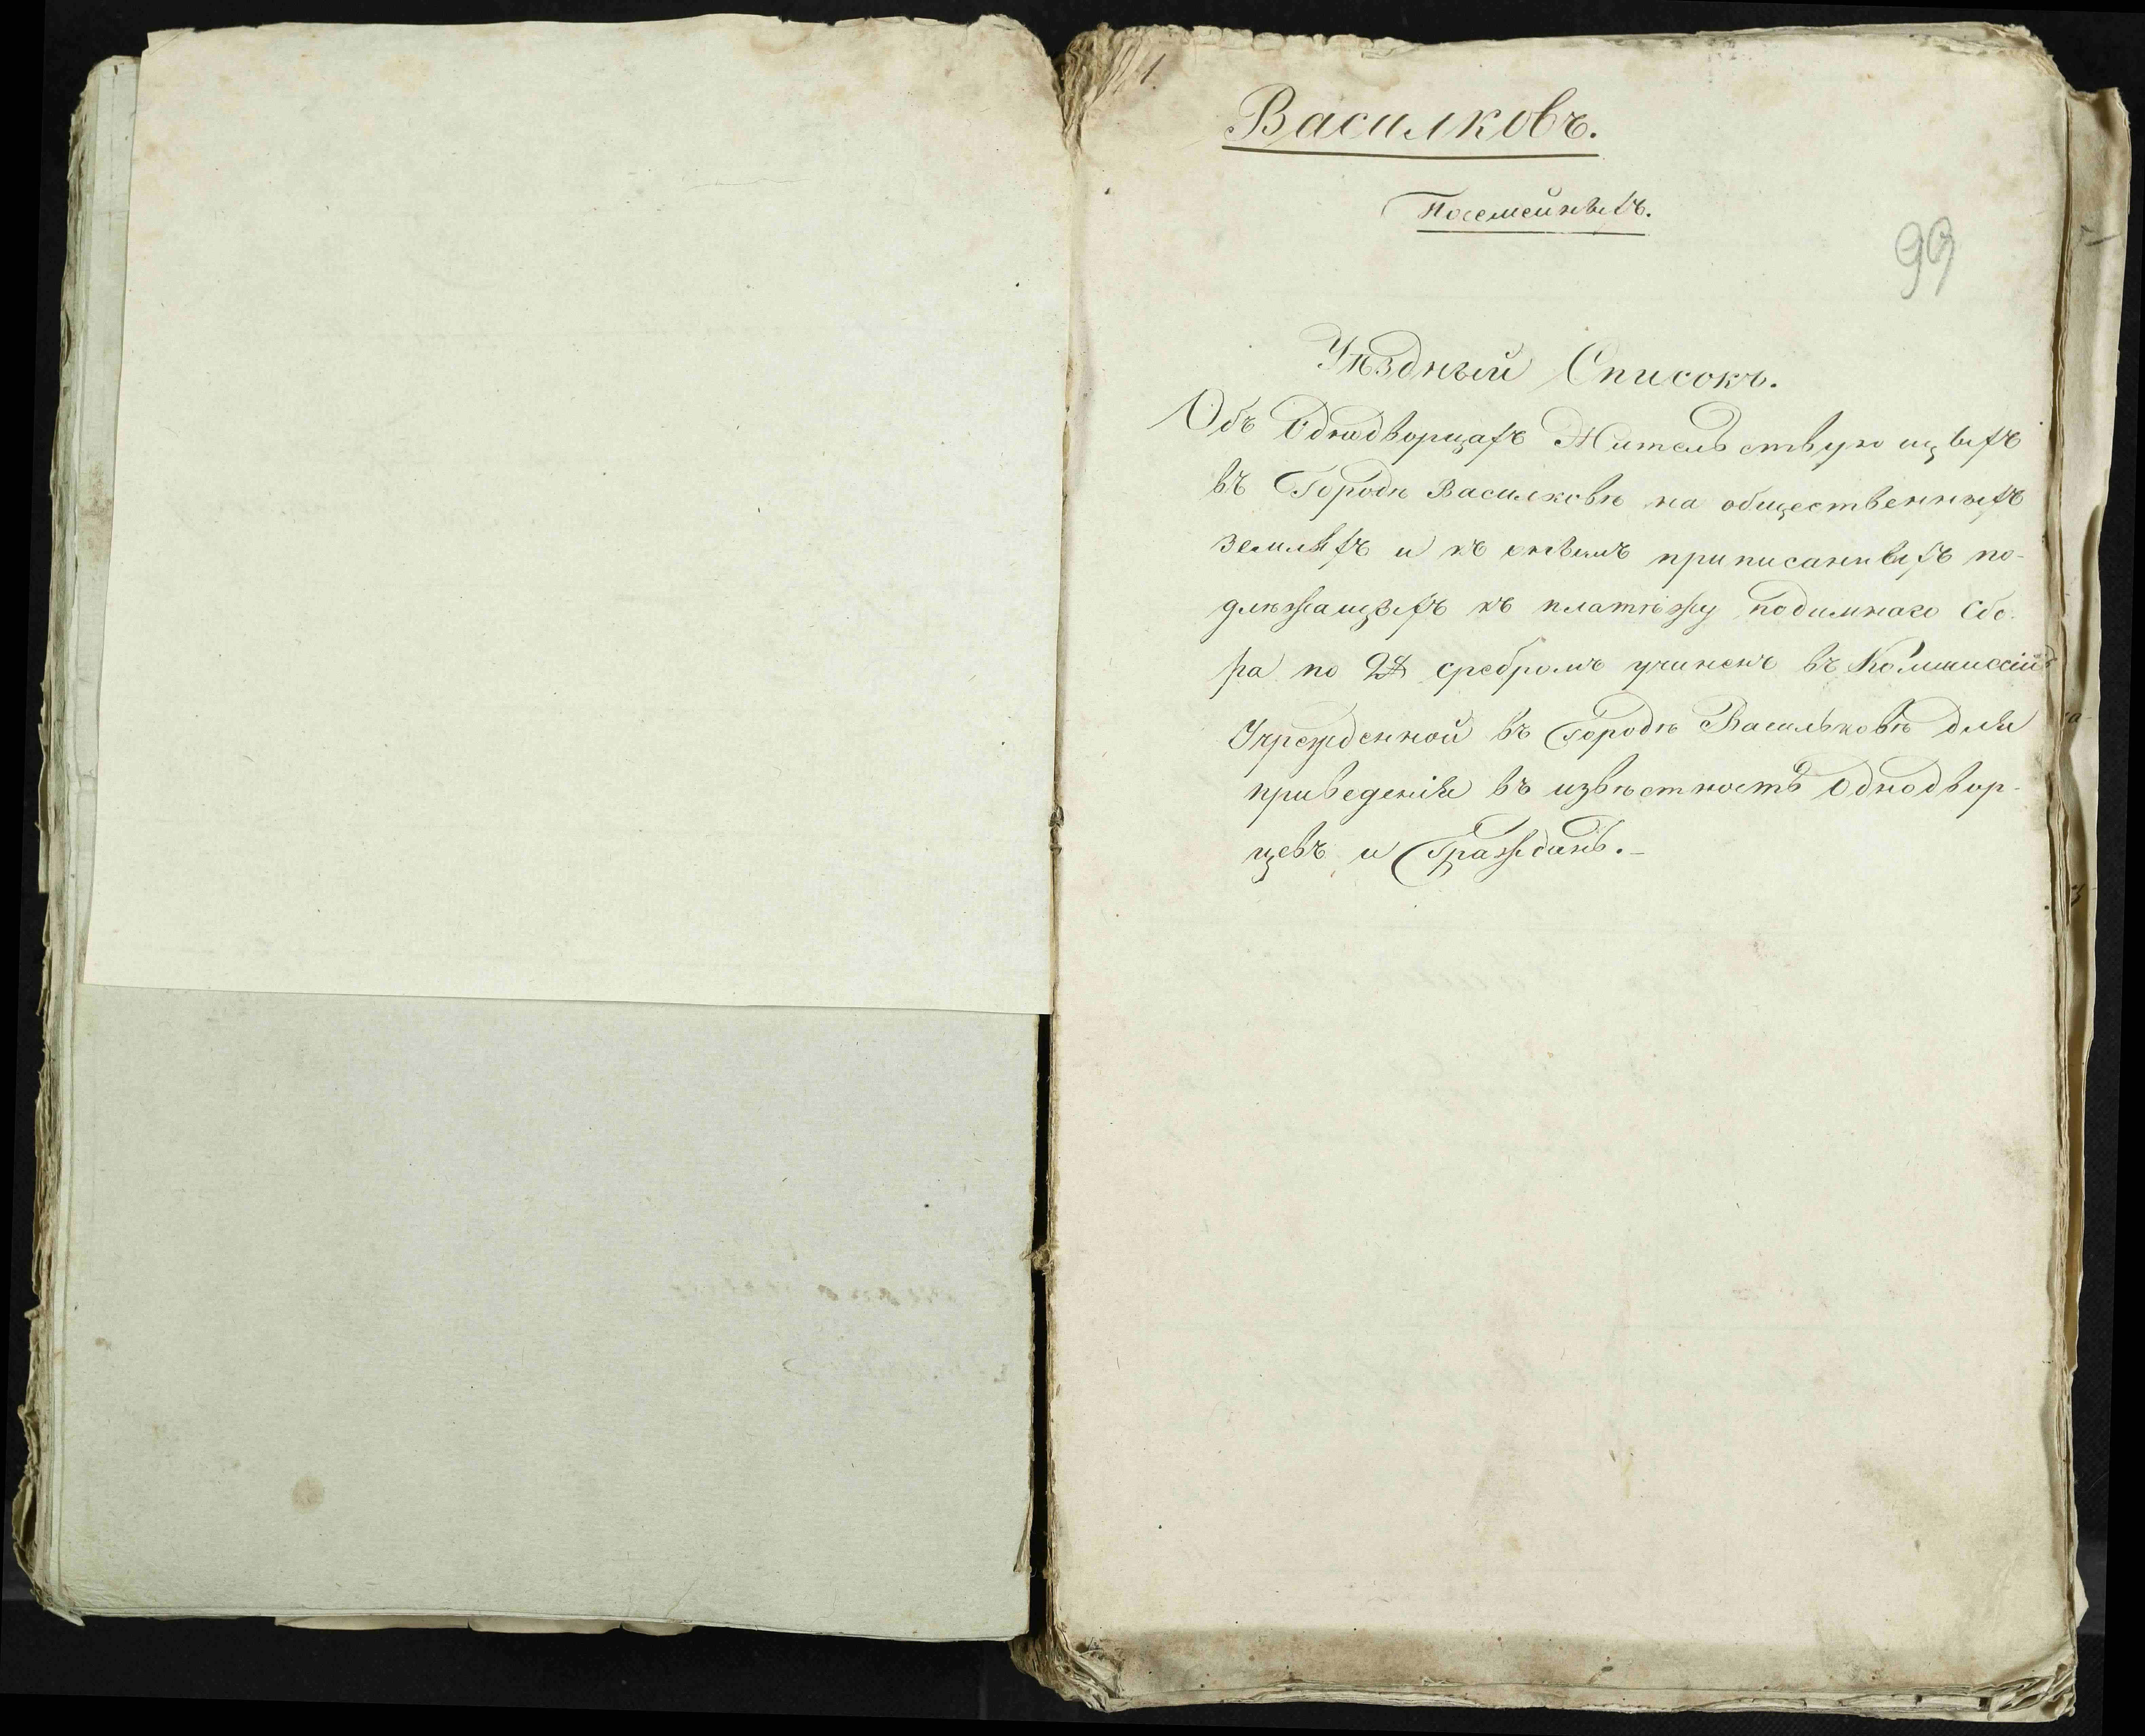 1.
Василковъ.
Посемейныхъ.
Уѣздный Списокъ.
Объ Однодворцахъ Жительствующыхъ
въ Городѣ Василковѣ на общественныхъ
земляхъ и къ онымъ приписанныхъ по-
длѣжащыхъ къ платѣжу подимнаго Сбо-
ра по сребромъ учиненъ въ Коммиссіи
Учрежденной въ Городѣ Васильковѣ для
приведенія въ извѣстность Однодвор-
цевъ и Гражданъ.-